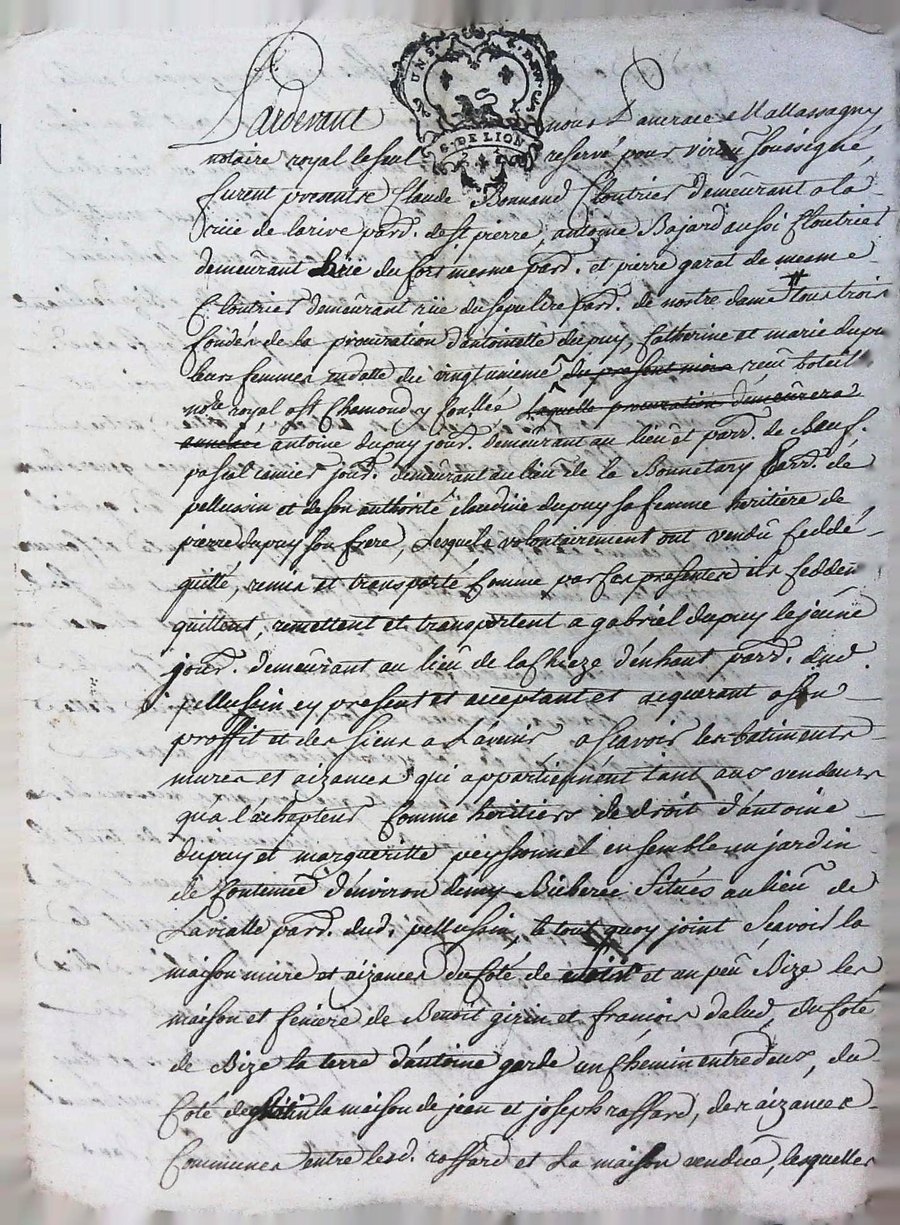 UN S. 4. D.
G. DE LION
Pardevant nous Pancrace Mallassagny
notaire royal le seul reservé pour virieu soussigné
furent presents Claude Bonnand Cloutrier demeurant a la
rüe de larive parr. de st pierre, antoine Bajard aussi Cloutrier
demeurant rüe du fort mesme parr. et pierre garat de mesme
Cloutrier demeurant rüe du sepulcre parr. de nostre dame # tous trois
fondés de la procuration d'antoinette dupuy, Catherine et marie dupuy
leurs femmes en datte du vingtunieme du present mois reçu boteil
nore royal a st Chamond y scellée laquelle procuration demeurera
annexée, antoine dupuy jourr. demeurant au lieu et parr. de Bœuf.
jourr. demeurant au lieu de la Bonnetary parr. de
pellussin et de son authorité claudine dupuy sa femme heritiere de
pierre dupuy son frere, Lesquels volontairement ont vendu ceddé
quitté, remis et transporté Comme par ses presentes ils ceddent
quittent, remettent et transportent a gabriel dupuy le jeune
jourr. demeurant au lieu de la Chieze d'enhaut parr. dud.
pellussin cy present et acceptant et acquerant a son
proffit et des siens a L'avenir, a scavoir les bâtiments
mures et aizances qui appartiennent tant aux vendeurs
qu'a l'achepteur Comme heritiers de droit d'antoine
dupuy et margueritte peyssonnel ensemble un jardin
de Contenue d'environ demy Bicherée Situés au lieu de
Lavialle parr. dud. pellussin, le tout quoy joint scavoir la
maison mure et aizances du Coté de et un peu Bize les
maison et feniere de Benoit girin et francois dalud, du Coté
de Bize la terre d'antoine garde un Chemin entredeux, du
Coté de la maison de jean et joseph raffard, des aizances
Communes entre lesd. raffard et La maison vendue, lesquelles